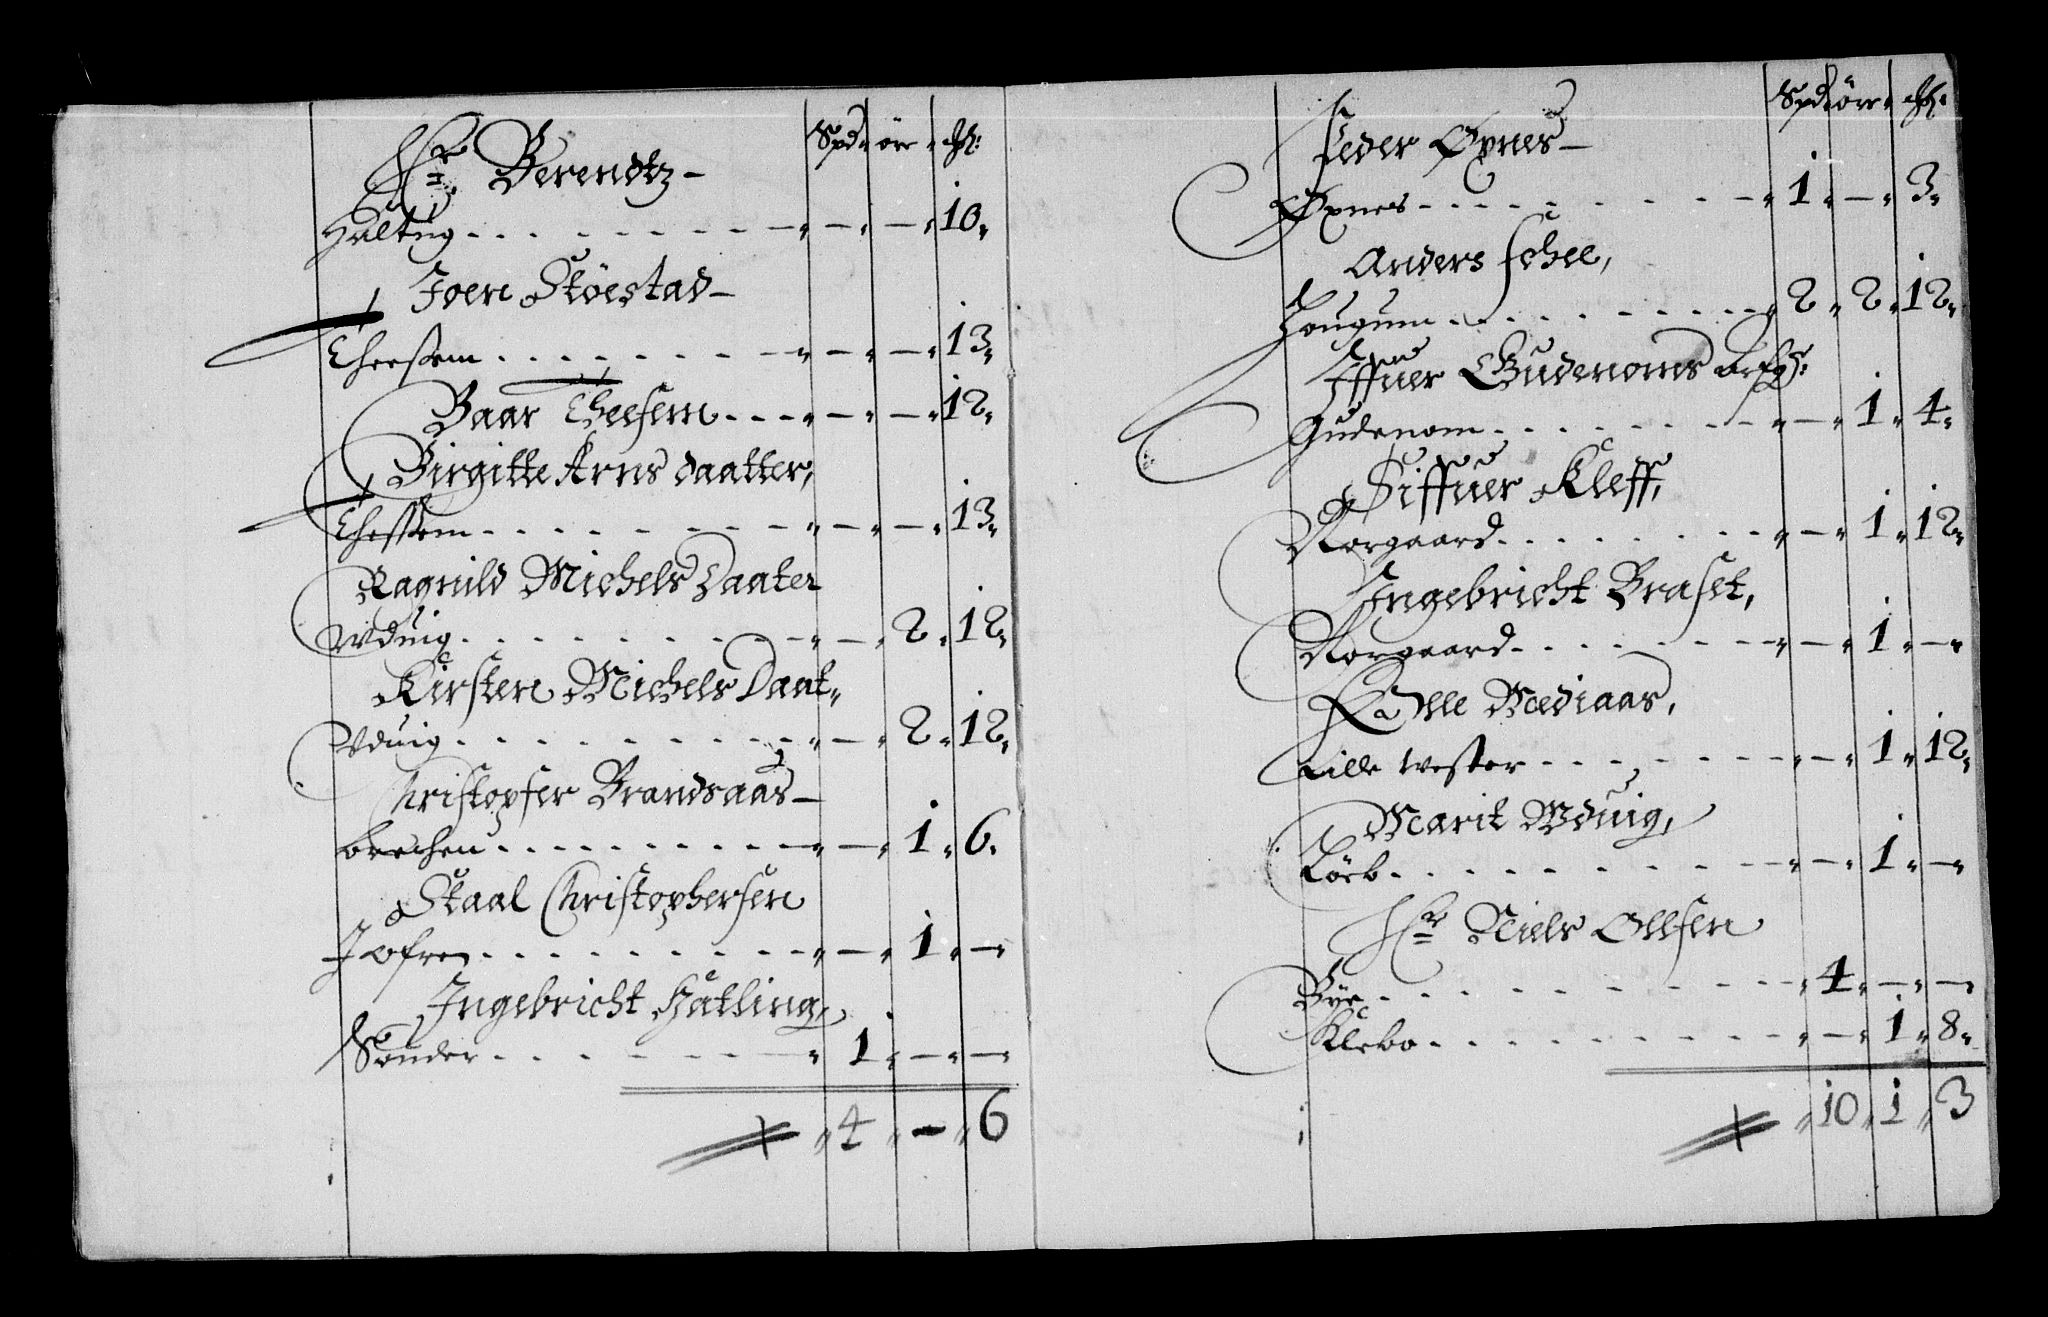 Spd ör ₰:
Hr Berendtz
Haltug - - - 10
Joen Støestad
Theessem - - - 13
Baar Theesem - - 12
Birgitte Arns daatter,
Thessem - - - 13
Ragnild Michels Daater
Wduig - - 2 12
Kirsten Michels Daat
Vduig - - 2 12
Christopfer Brandsaas
- - 1 6
Staal Christophersen
- - 1 -
Ingebricht Hatling,
Sønder - 1 - -
4 - 6
Spd ör ₰:
Peder Øxnes
Øxnes - 1 - 3
Anders Schee,
Hougum - 2 2 12
Iffuer Gudenoms
Gudenom - - 1 4
Siffuer Kleff,
Norgaard - - 1 12
Ingebricht Braset,
Norgaard - - 1 -
Olle Mediaas,
Lille wester - - 1 12
Marit Wduig,
- - 1 -
Hr Niels Ollsen
Bye - 4 - -
Klebo - - 1 8
10 1 3